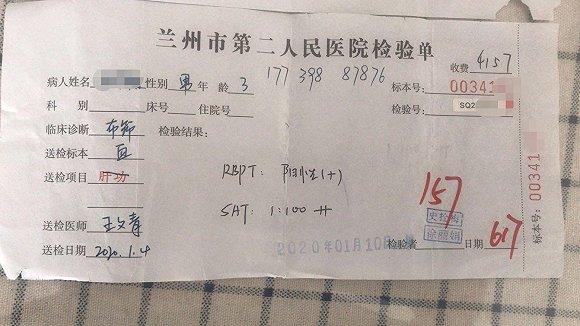 兰州市第二人民医院检验单
收费 4157
病人姓名 性别 男 年 龄 3
177 398 87876
标本号: 00341
科 别 床号 住院号
检验号: SQ2
临床诊断 布算 检验结果:
送检标本 血
送检项目 肝功
RBPT: 阳性(+)
SAT: 1:100 ++
157
送检医师
送检日期 2020.1.4
2020年01月10日
检验者 日期 617
标本号: 00341